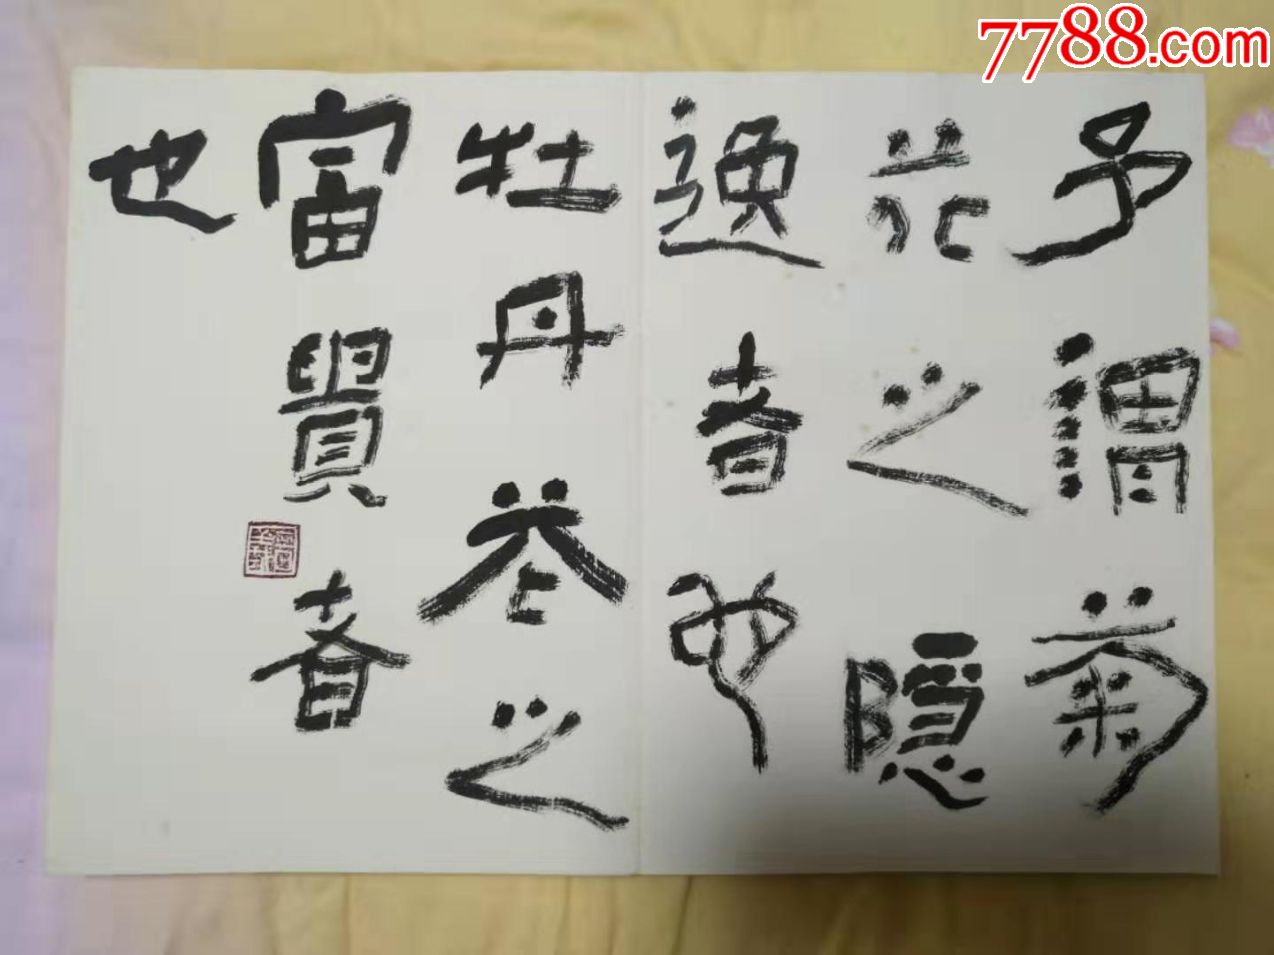 7788.com
予謂菊
花之隱
逸者也
牡丹花之
富貴者
也